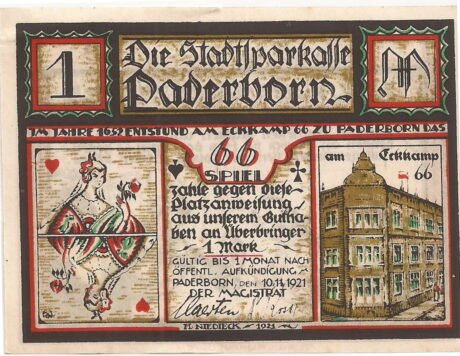 1
Die Stadtsparkasse
M
Paderborn
IM JAHRE 1652 ENTSTUND AM ECKKAMP 66 ZU PADERBORN DAS
66
SPIEL
zahle gegen diese
Platzanweisung
aus unserem Gutha-
ben an Überbringer
1 Mark
GÜLTIG BIS 1 MONAT NACH
ÖFFENTL. AUFKÜNDIGUNG
PADERBORN, DEN 10.11.1921
DER MAGISTRAT
am Eckkamp
66
H. NIEDIECK 1921